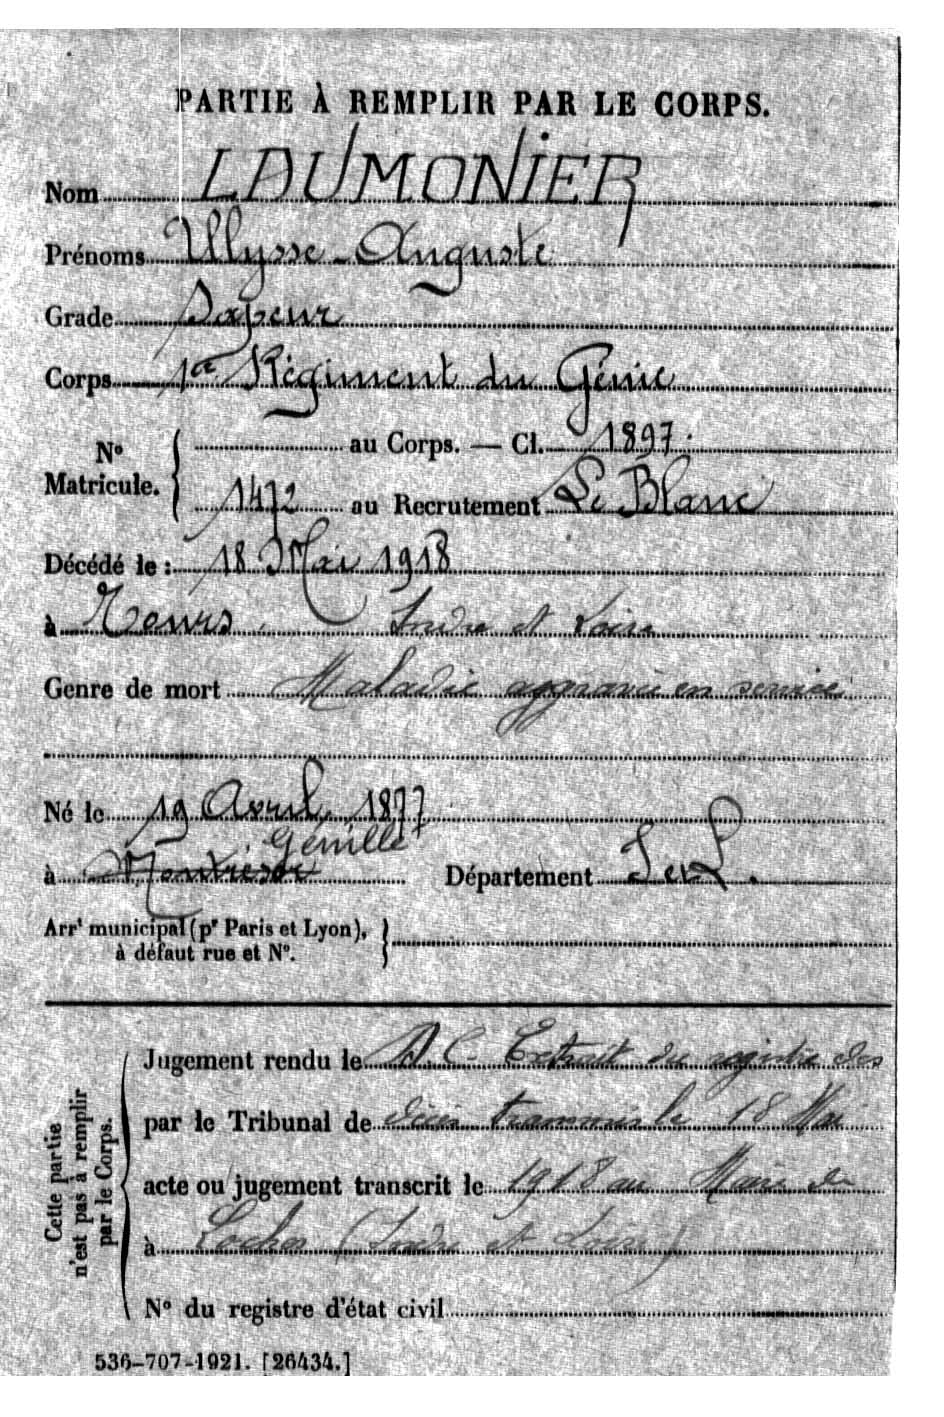 PARTIE À REMPLIR PAR LE CORPS.
Nom LAUMONIER
Prénoms Ulysse - Auguste
Grade Sapeur
Corps 1er Régiment du Génie
No Matricule. { au Corps. — Cl. 1897.
1472 au Recrutement Le Blanc
Décédé le : 18 Mai 1918
à Tours Indre et Loire
Genre de mort Maladie aggravée en service
Né le 19 Avril 1877
Génillé
à Montrésor Département I et L.
Arrt municipal (pr Paris et Lyon), }
à défaut rue et No.
Cette partie n'est pas à remplir par le Corps.
Jugement rendu le A.C. Extrait du registre des
par le Tribunal de décès transmis le 18 Mai
acte ou jugement transcrit le 1918 au Maire de
à Loches (Indre et Loire)
No du registre d'état civil
536-707-1921. [26434.]